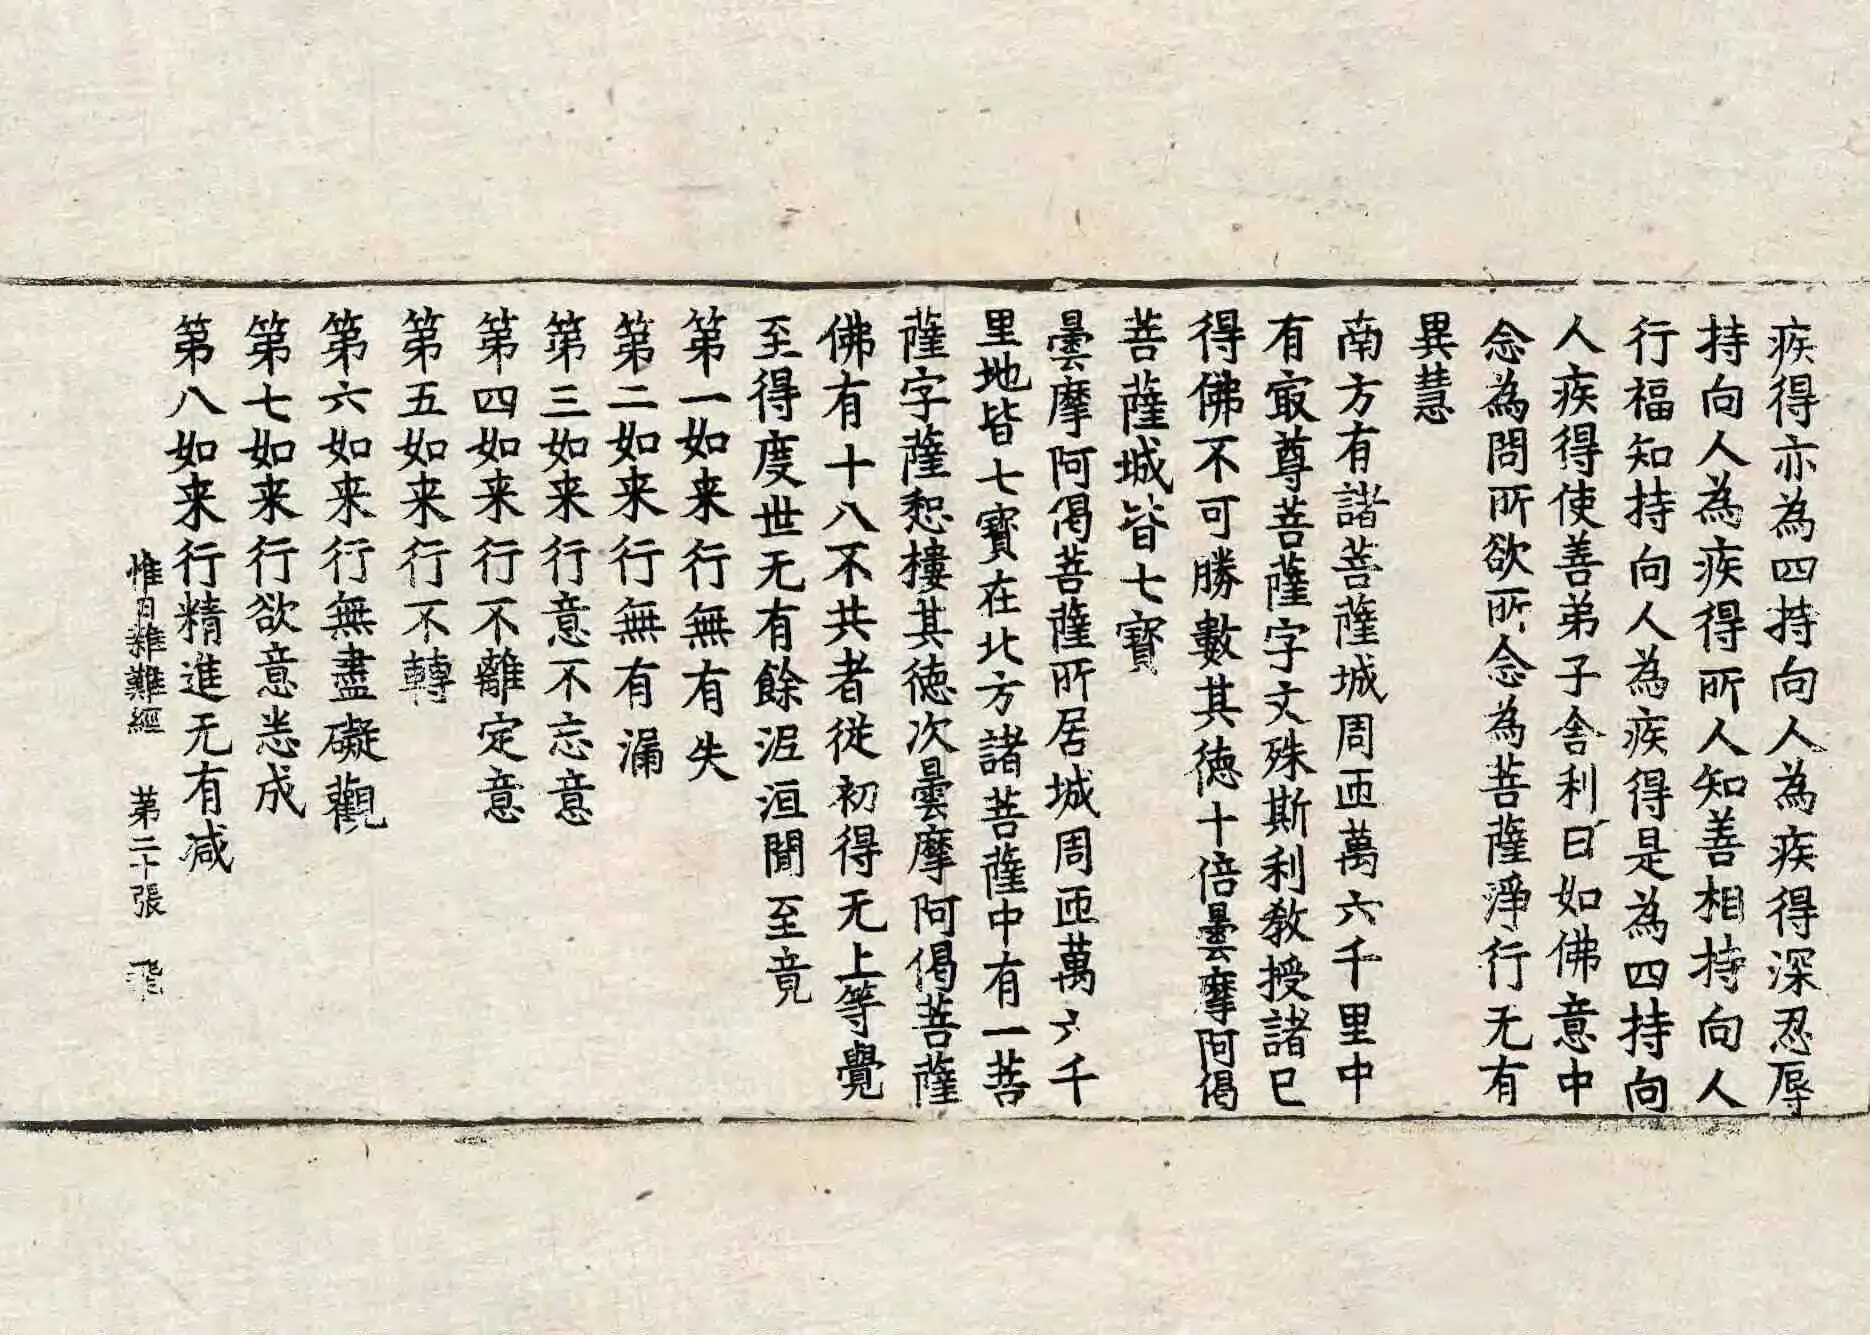 疾得亦為四持向人為疾得深忍辱
持向人為疾得所人知善相持向人
行福知持向人為疾得是為四持向
人疾得使善弟子舍利曰如佛意中
念為問所欲所念為菩薩淨行无有
異慧
南方有諸菩薩城周匝萬六千里中
有㝡尊菩薩字文殊斯利教授諸已
得佛不可勝數其德十倍曇摩阿偈
菩薩城皆七寶
曇摩阿偈菩薩所居城周匝萬六千
里地皆七寶在北方諸菩薩中有一菩
薩字薩惒樓其德次曇摩阿偈菩薩
佛有十八不共者從初得无上等覺
至得度世无有餘泥洹閒至竟
第一如来行無有失
第二如来行無有漏
第三如来行意不忘意
第四如来行不離定意
第五如来行不轉
第六如来行無盡礙觀
第七如来行欲意恙成
第八如来行精進无有减
惟日雜難經 第二十張 飛